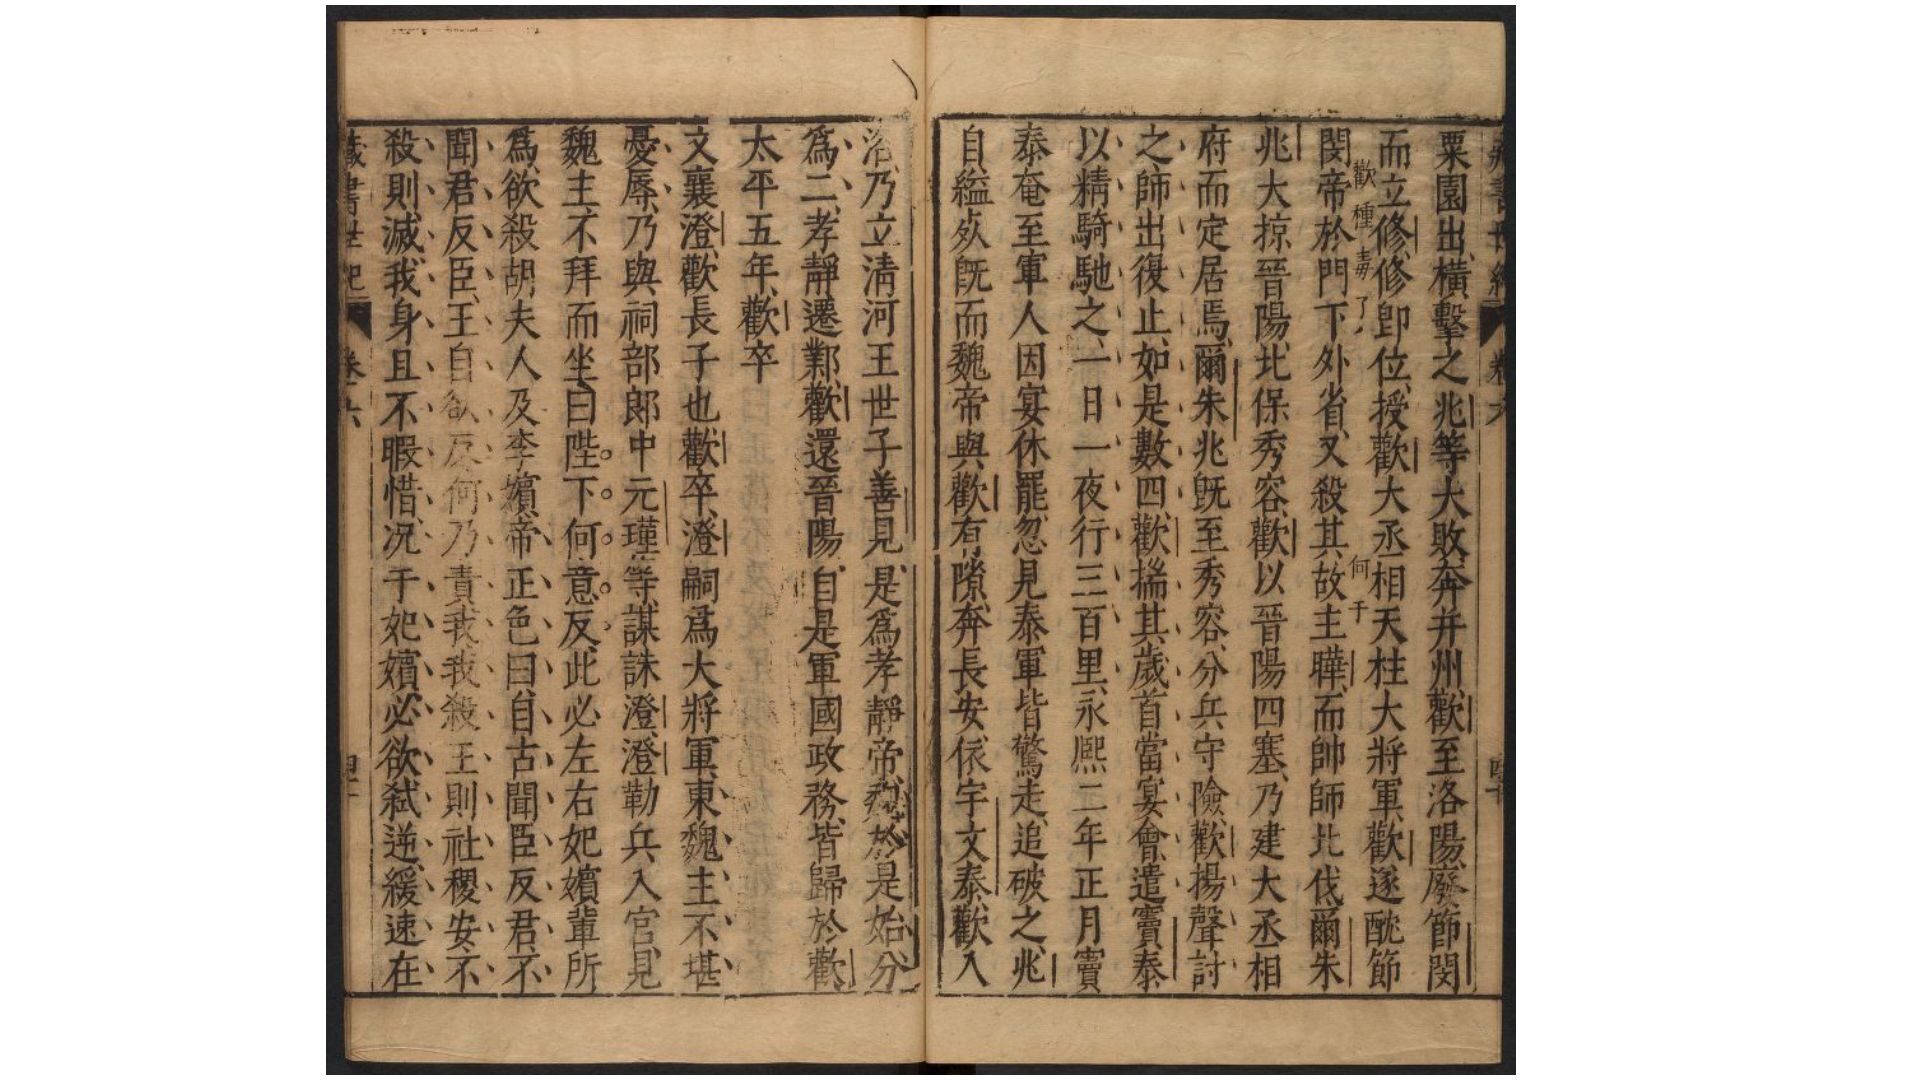 栗園出橫擊之兆等大敗奔并州歡至洛陽廢節閔
而立修修卽位授歡大丞相天柱大將軍歡遂酖節
歡種毒了
何于
閔帝於門下外省又殺其故主曄而帥師北伐爾朱
兆大掠晉陽北保秀容歡以晉陽四塞乃建大丞相
府而定居焉爾朱兆旣至秀容分兵守險歡揚聲討
之師出復止如是數四歡揣其歲首當宴會遣竇泰
以精騎馳之一日一夜行三百里永熙二年正月竇
泰奄至軍人因宴休罷忽見泰軍皆驚走追破之兆
自縊死旣而魏帝與歡有隙奔長安依宇文泰歡入
洛乃立淸河王世子善見是爲孝靜帝魏於是始分
爲二孝靜遷鄴歡還晉陽自是軍國政務皆歸於歡
太平五年歡卒
文襄澄歡長子也歡卒澄嗣爲大將軍東魏主不堪
憂辱乃與祠部郞中元瑾等謀誅澄澄勒兵入宮見
魏主不拜而坐曰陛下何意反此必左右妃嬪輩所
爲欲殺胡夫人及李嬪帝正色曰自古聞臣反君不
聞君反臣王自欲反何乃責我我殺王則社稷安不
殺則滅我身且不暇惜況于妃嬪必欲弒逆緩速在
藏書世紀 卷六